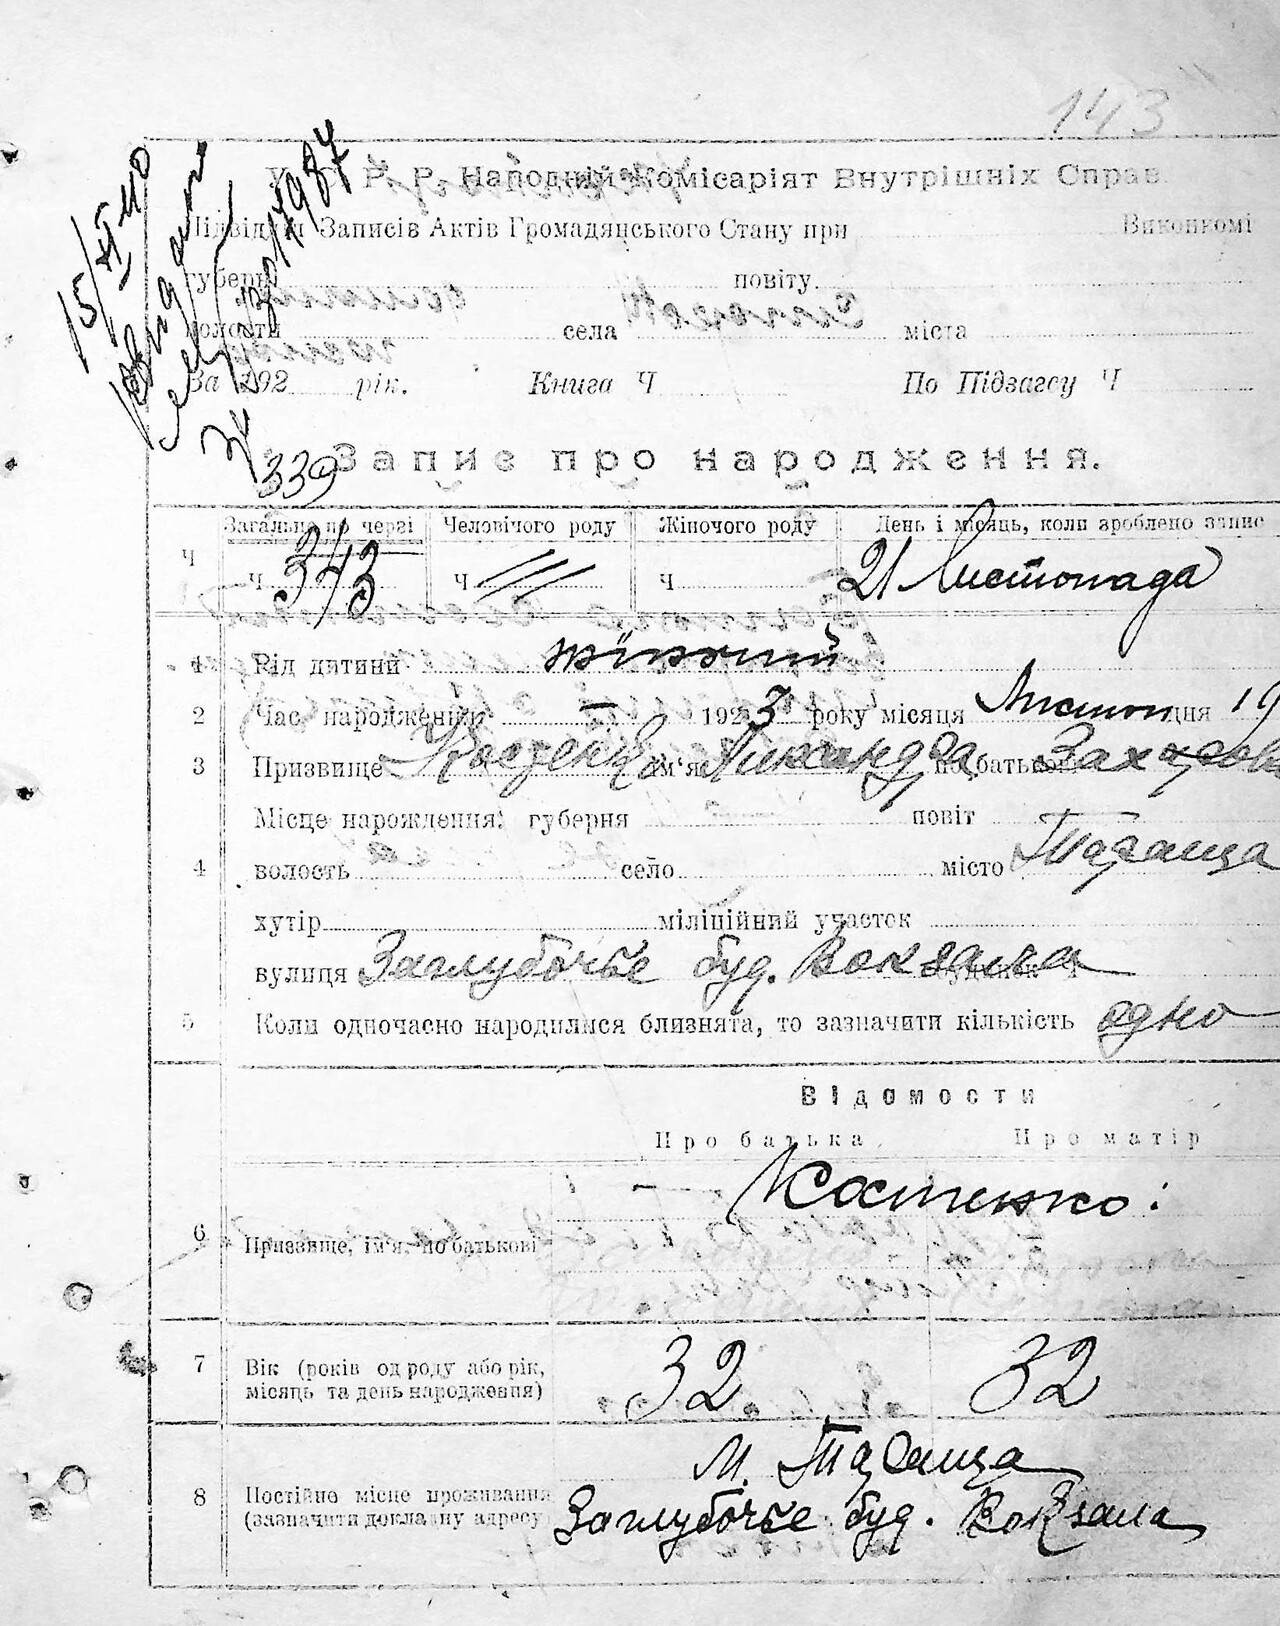 143
15/XI 40
339
У. С. Р. Р. Народній Комісаріят Внутрішніх Справ.
Підвідділ Записів Актів Громадянського Стану при Виконкомі
губерні повіту
волости села міста
За 192 рік. Книга Ч По Підзагсу Ч
Запис про народження.
Загальне по черзі Человічого роду Жіночого роду День і місяць, коли зроблено запис
Ч Ч 343 Ч Ч 21 Листопада
1 Рід дитини жіночий
2 Час народження 1923 року місяця Листоп дня 19
3 Призвище Костенко ім'я Александра по батькові Захарова
Місце нарождення: губерня повіт
4 волость село місто Тараща
хутір міліційний участок
вулиця Заглубочье буд. Вокзала будинок Ч
5 Коли одночасно народилися близнята, то зазначити кількість одно
Відомости
Про батька Про матір
Костенко:
6 Призвище, ім'я, по батькові
7 Вік (років од роду або рік, місяць та день народження) 32 32
м. Тараща
8 Постійне місце проживання (зазначити докладну адресу) Заглубочье буд. Вокзала